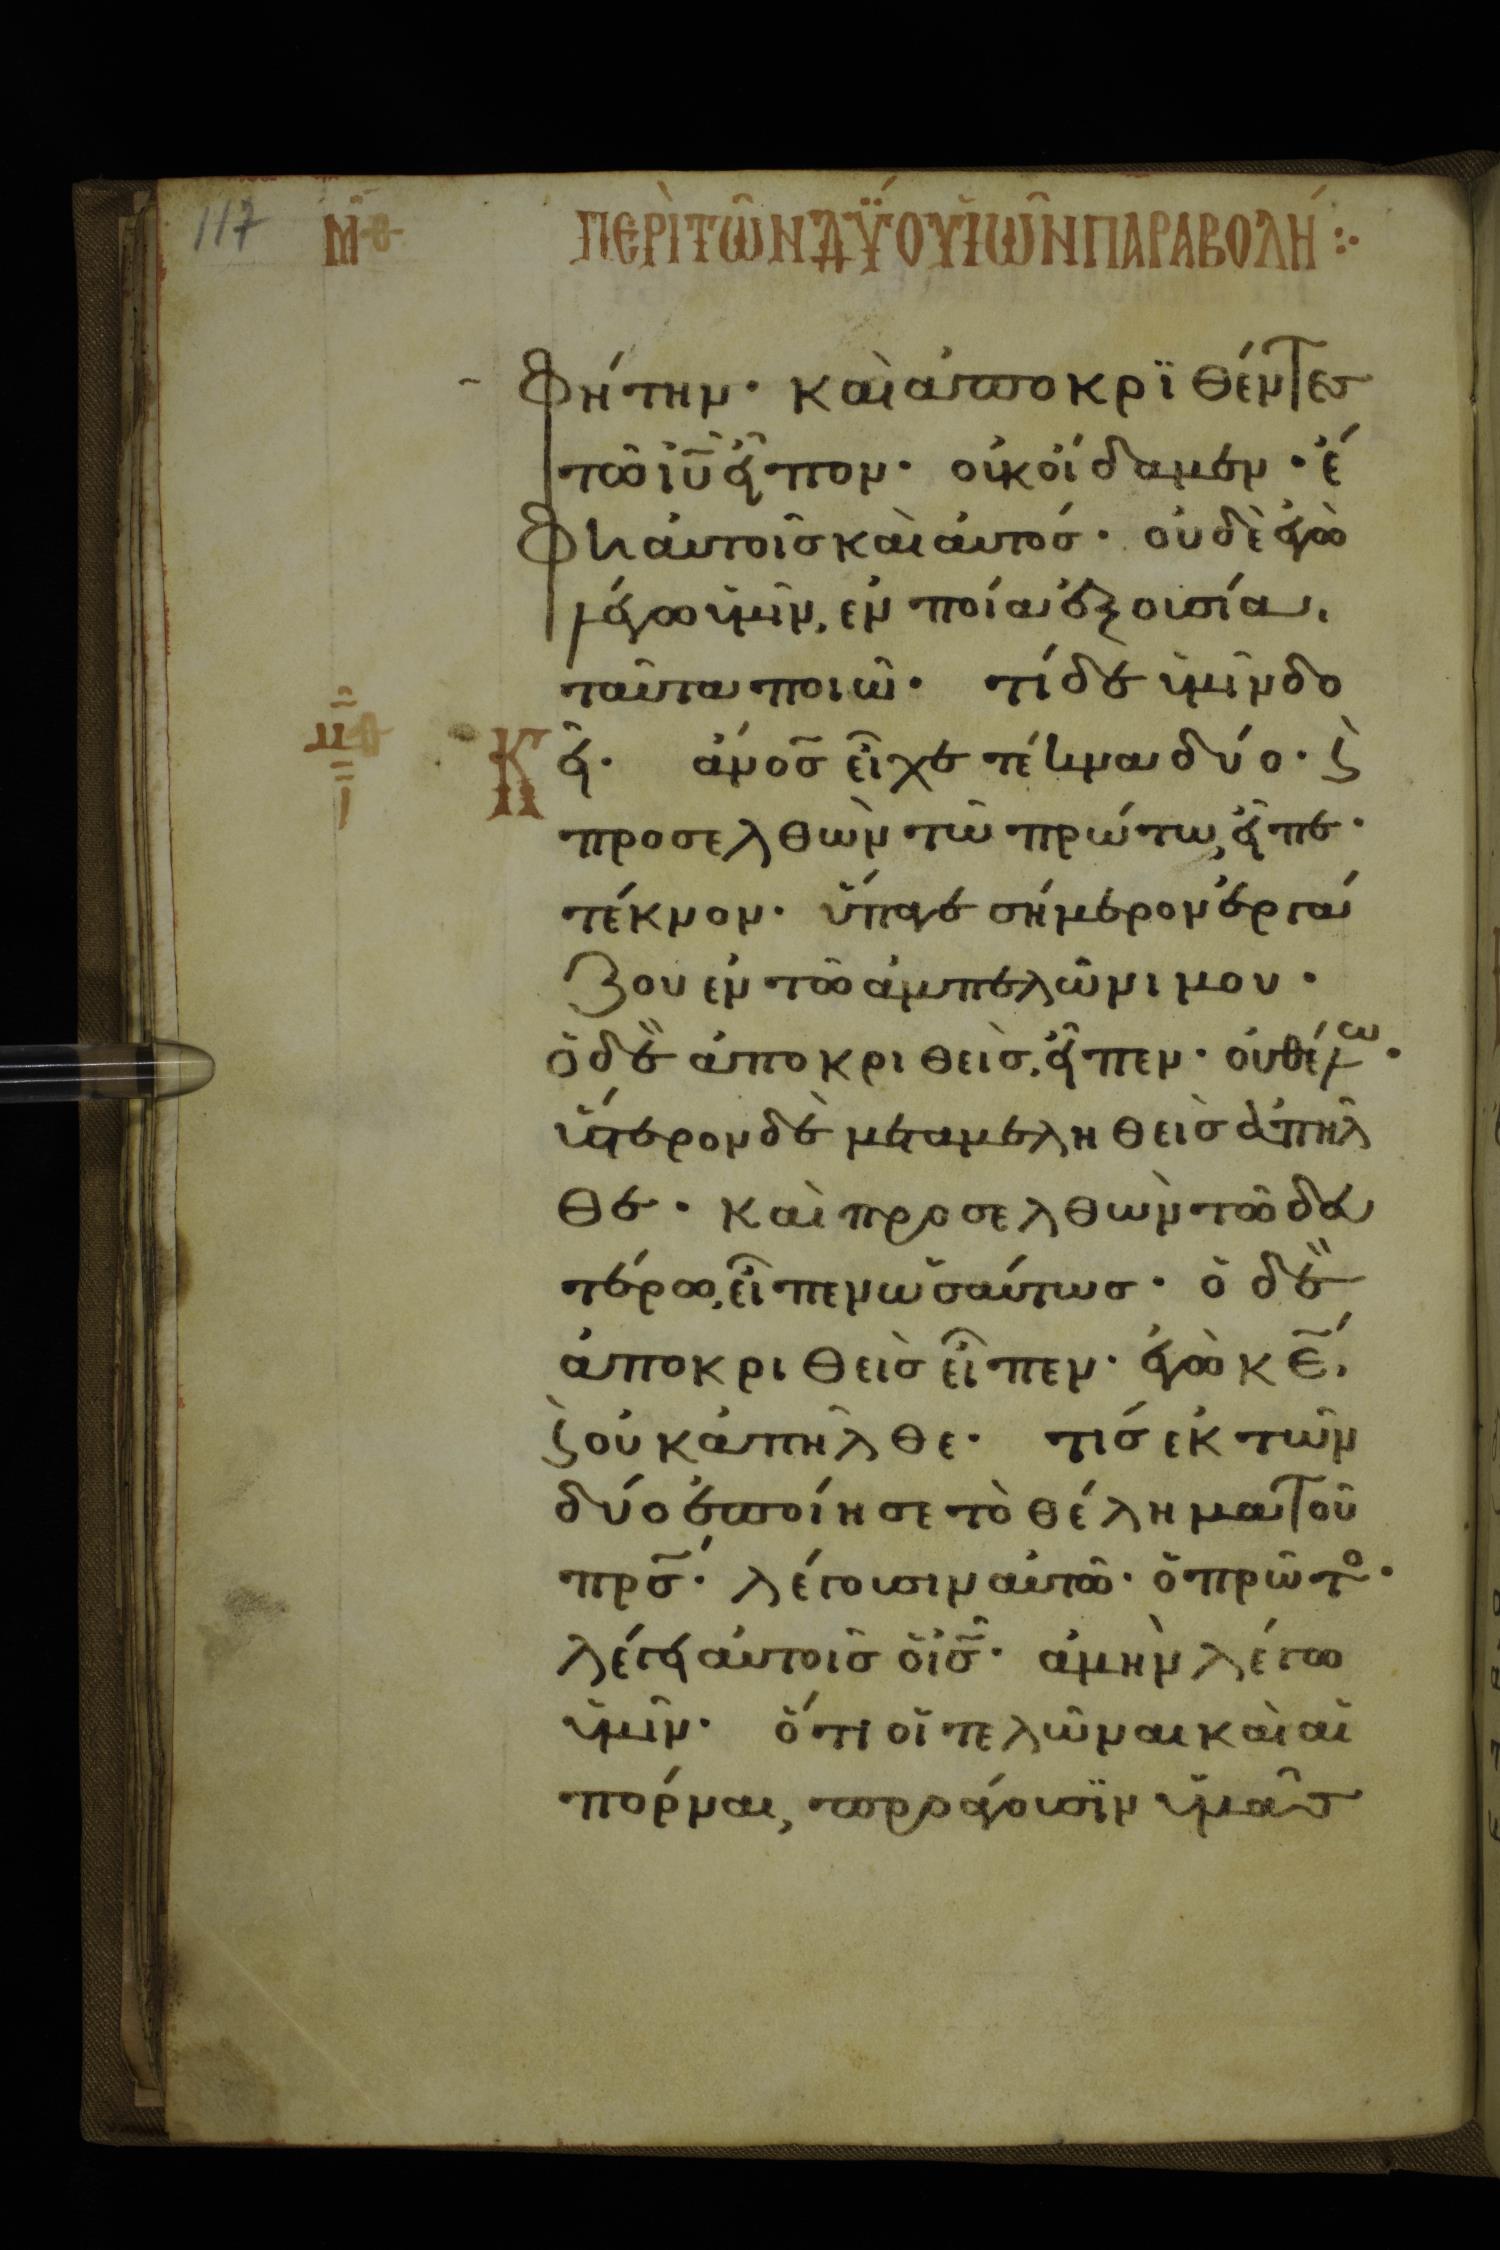 117 Μ̅Θ ΠΕΡῚ ΤΩ͂Ν ΔΎΟ ΥἹΩ͂Ν ΠΑΡΑΒΟΛΉ:·
φήτην· καὶ ἀποκρϊθέντεσ
τῶ ἰῦ εἶπον· οὐκ οἴδαμεν· ἔ
φη αὐτοῖσ καὶ αὐτόσ· οὐδὲ ἐγὼ
λέγω ὑμῖν, ἐν ποία ἐξουσία,
ταῦτα ποιῶ· τί δὲ ὑμῖν δο
Κ εῖ· ἄνοσ̅ εἶχε τέκνα δύο· ϛ̀
προσελθὼν τῶ πρώτω, εἶπε·
τέκνον· ὕπαγε σήμερον ἐργά
ζου ἐν τῶ ἀμπελῶνι μου·
ὁ δὲ ἀποκριθεὶσ, εἶπεν· οὐ θέλω·
ὕστερον δὲ μεταμεληθεὶσ ἀπῆλ
θε· καὶ προσελθὼν τῶ δευ
τέρω, εἶπεν ὡσαύτωσ· ὁ δὲ
ἀποκριθεὶσ εἶπεν· ἐγὼ κε̅,
ϛ̀ οὐκ ἀπῆλθε· τίσ ἐκ τῶν
δύο ἐποίησε τὸ θέλημα τοῦ
πρσ̅· λέγουσιν αὐτῶ· ὁ πρῶτο·
λέγει αὐτοῖσ ὁ ἰσ̅· ἀμὴν λέγω
ὑμῖν· ὅτι οἱ τελῶναι καὶ αἱ
πόρναι, προάγουσϊν ὑμᾶσ